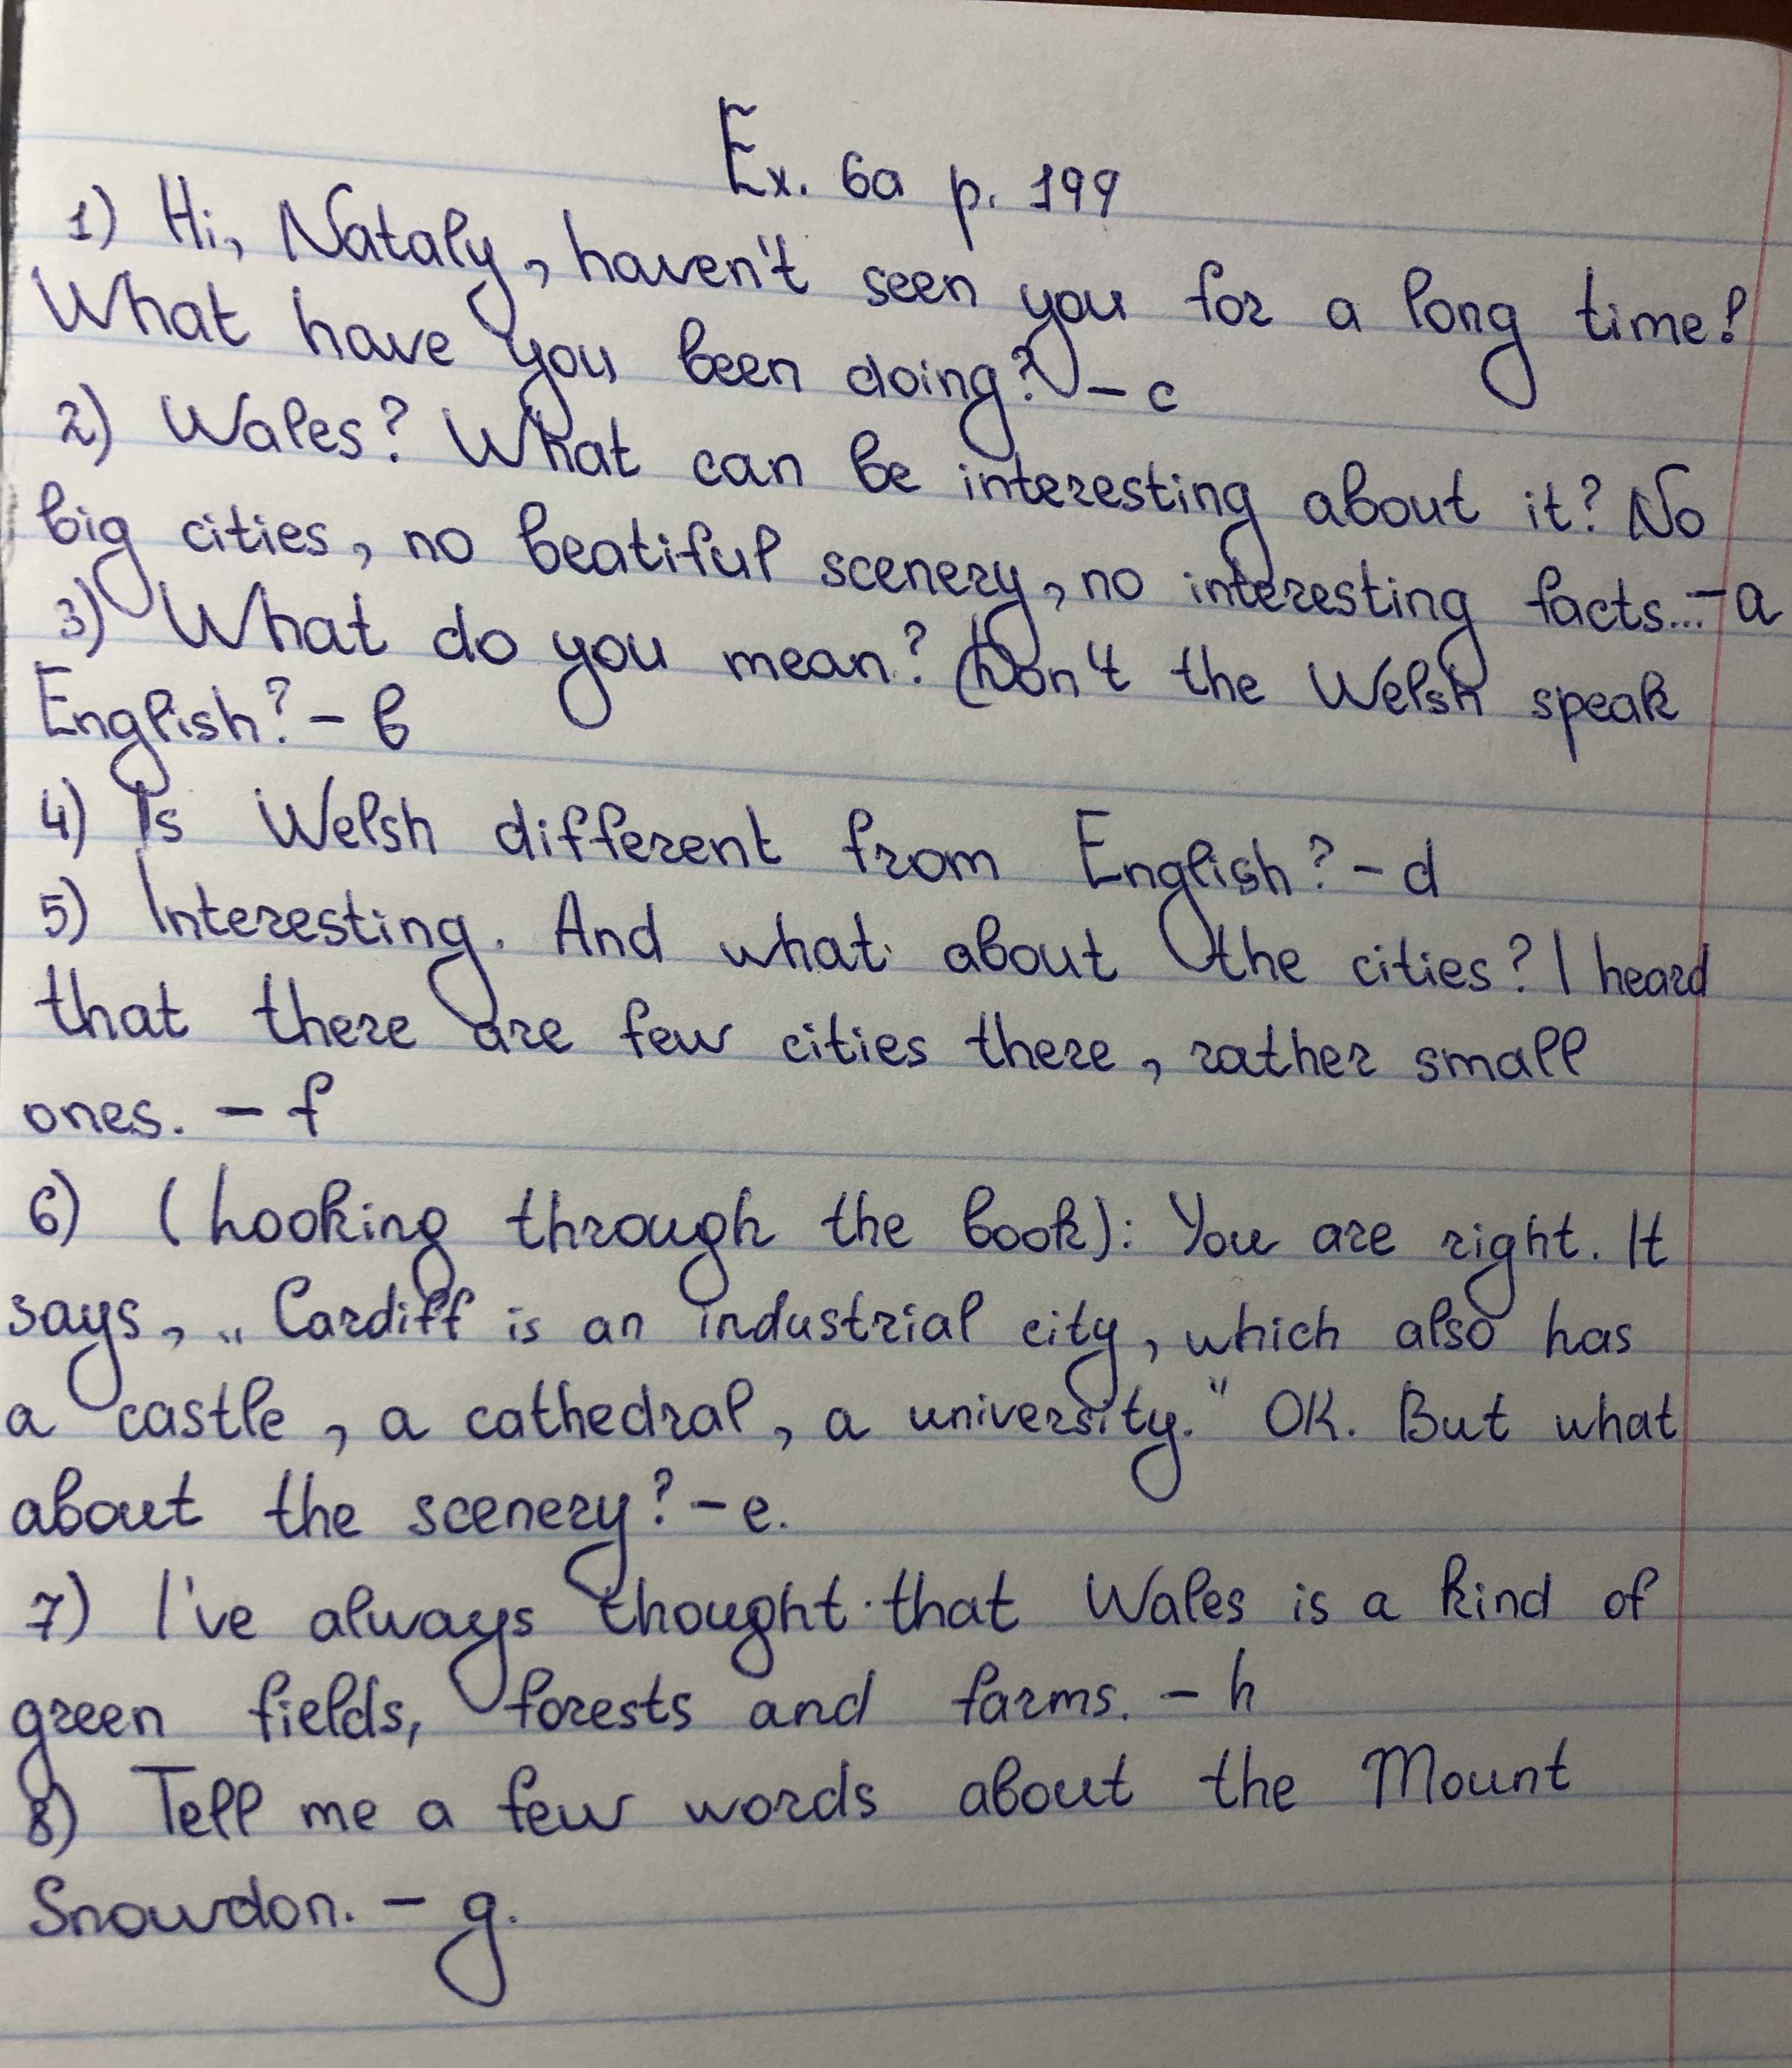 Ex. 6a p. 199
1) Hi, Nataly, haven't seen you for a long time!
What have you been doing? – c
2) Wales? What can be interesting about it? No
big cities, no beatiful scenery, no interesting facts... – a
3) What do you mean? Don't the Welsh speak
English? – b
4) Is Welsh different from English? – d
5) Interesting. And what about the cities? I heard
that there are few cities there, rather small
ones. – f
6) (Looking through the book): You are right. It
says, „Cardiff is an industrial city, which also has
a castle, a cathedral, a university." OK. But what
about the scenery? – e.
7) I've always thought that Wales is a kind of
green fields, forests and farms. – h
8) Tell me a few words about the Mount
Snowdon. – g.